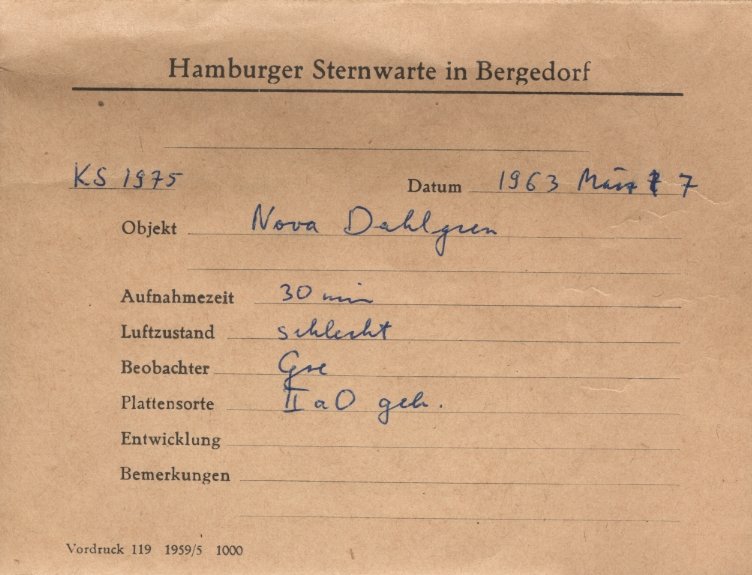 Hamburger Sternwarte in Bergedorf
KS 1975 Datum 1963 März 7
Objekt Nova Dahlgren
Aufnahmezeit 30 min
Luftzustand schlecht
Beobachter Gre
Plattensorte II a O geh.
Entwicklung
Bemerkungen
Vordruck 119 1959/5 1000